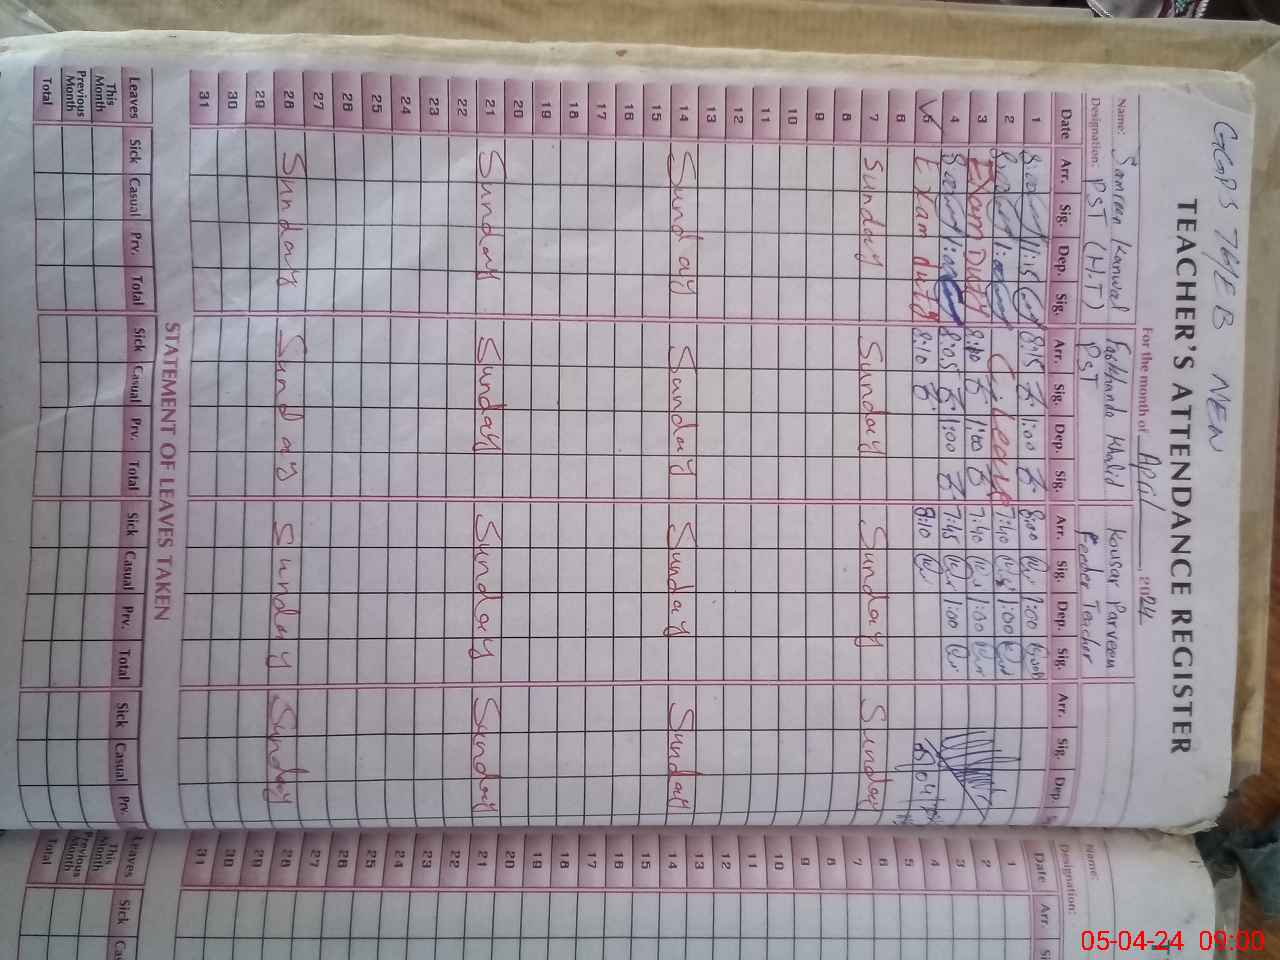 GGPS 76/EB MEN
TEACHER'S ATTENDANCE REGISTER
For the month of April, 2024
Name: Samreen Kanwal Farkhanda Khalid Kousar Parveen
Designation: PST (H.T) PST Feeder Teacher
Date Arr. Sig. Dep. Sig. Arr. Sig. Dep. Sig. Arr. Sig. Dep. Sig. Arr. Sig. Dep.
1 8:00 1:15 8:15 1:00 8:00 1:00
2 8:00 1:00 C. Leave 7:40 1:00
3 Exam Duty 8:10 1:00 7:40 1:00
4 8:00 1:00 8:05 1:00 7:45 1:00
5 Exam duty 8:10 8:10
6
7 Sunday Sunday Sunday Sunday
8
9
10
11
12
13
14 Sunday Sunday Sunday Sunday
15
16
17
18
19
20
21 Sunday Sunday Sunday Sunday
22
23
24
25
26
27
28 Sunday Sunday Sunday Sunday
29
30
31
STATEMENT OF LEAVES TAKEN
Leaves Sick Casual Prv. Total Sick Casual Prv. Total Sick Casual Prv. Total Sick Casual Prv.
This Month
Previous Month
Total
Name:
Designation:
Date Arr.
1
2
3
4
5
6
7
8
9
10
11
12
13
14
15
16
17
18
19
20
21
22
23
24
25
26
27
28
29
30
31
Leaves Sick
This Month
Previous Month
Total
05-04-24 09:00